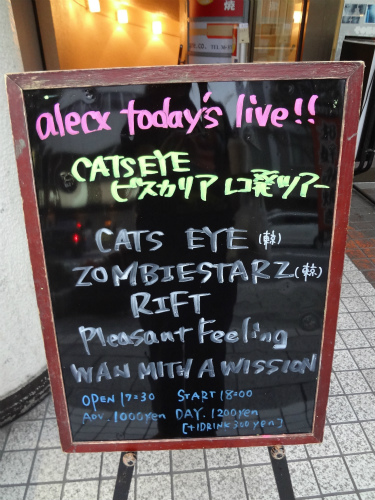 alecx today's live!!
CATSEYE
ビスカリア レコ発ツアー
CATS EYE (韓)
ZOMBIESTARZ (韓)
RIFT
Pleasant Feeling
WAN MITH A WISSION
OPEN 17:30 START 18:00
ADV. 1000yen DAY. 1200yen
[+1DRINK 300yen]